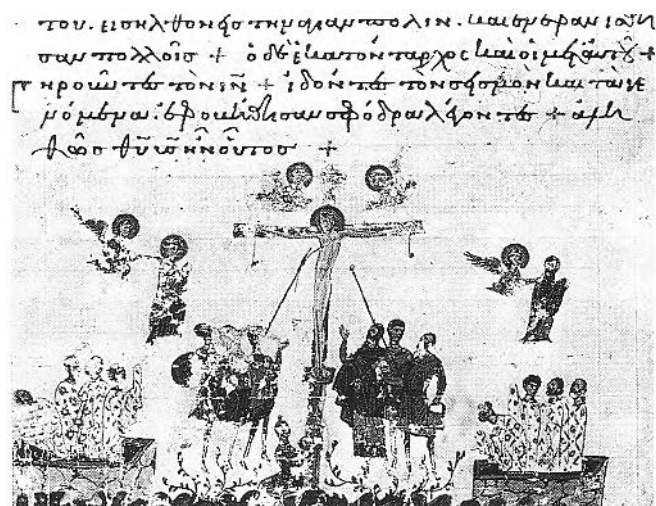 του. εισῆλθον εἰς την ἁγίαν πόλιν. και ἐνεφανίσθη
σαν πολλοῖς + ὁ δὲ ἑκατόνταρχος και οἱ μετ αὐτοῦ +
τηροῦντες τὸν ιν̅ + ἰδόντες τὸν σεισμὸν και τὰ γε
νόμενα. ἐφοβήθησαν σφόδρα λέγοντες + ἀλη
θῶς θυ̅ υς̅ ἦν οὗτος +